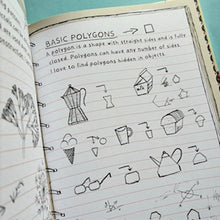 BASIC POLYGONS
A polygon is a shape with straight sides and is fully
closed. Polygons can have any number of sides.
I love to find polygons hidden in objects.